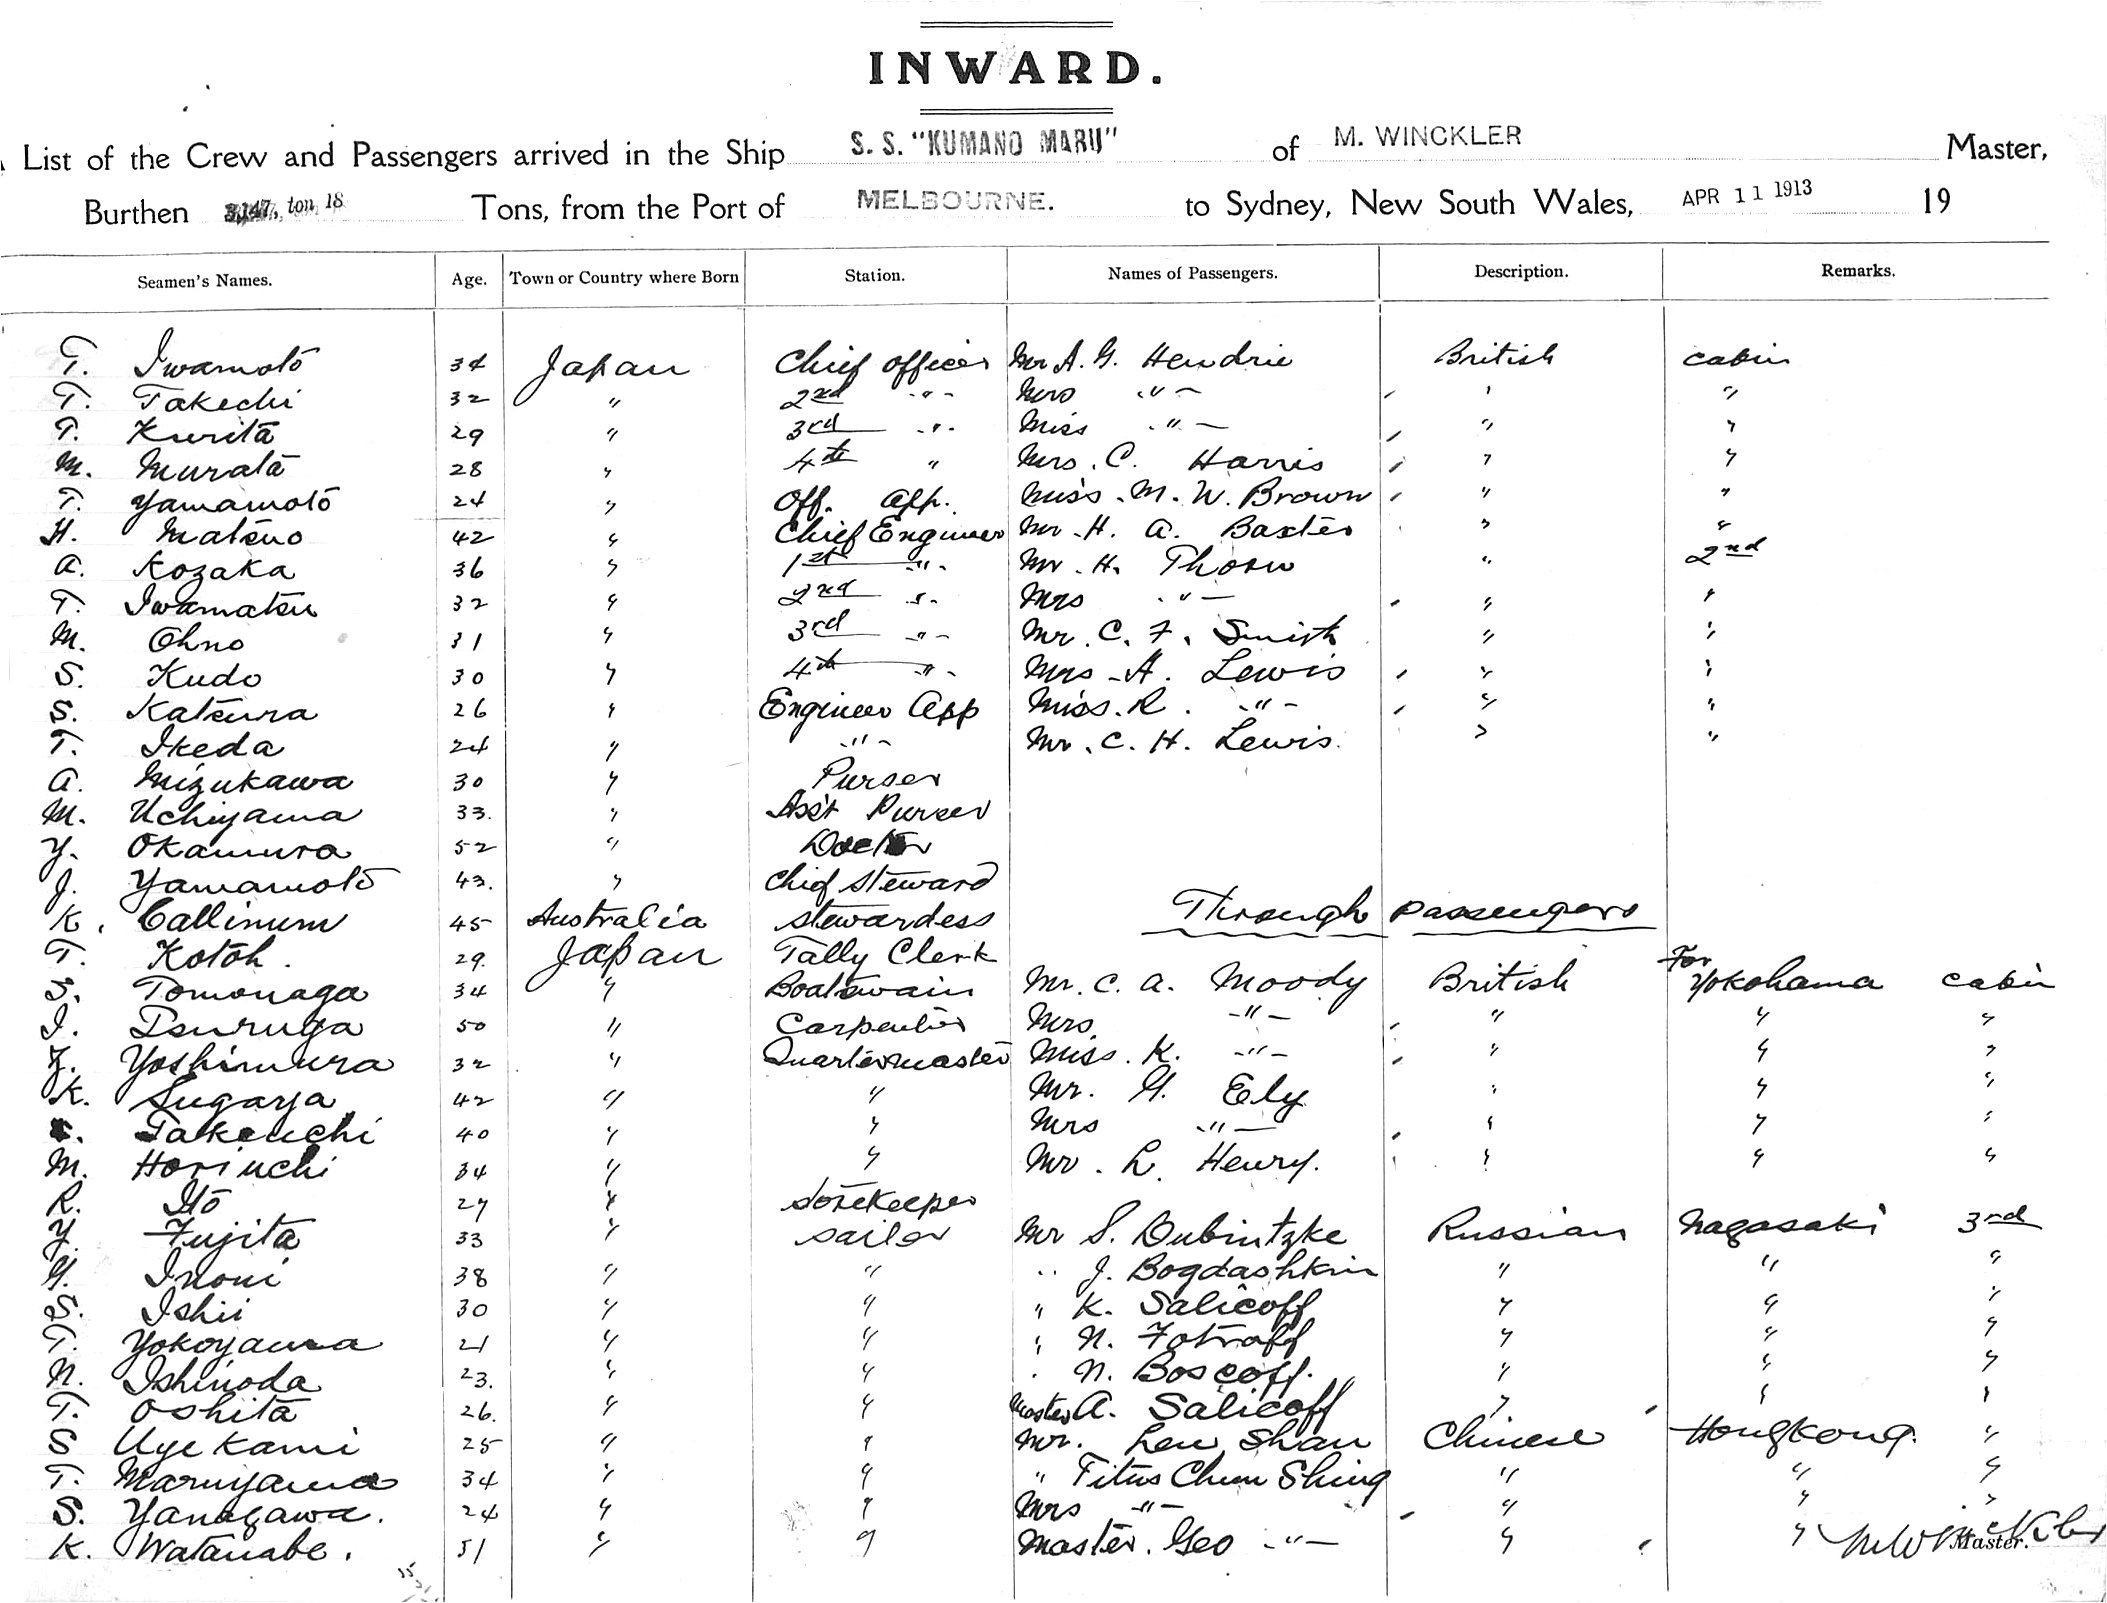 INWARD.
List of the Crew and Passengers arrived in the Ship S. S. "KUMANO MARU" of M. WINCKLER Master,
Burthen 3,147, ton 18 Tons, from the Port of MELBOURNE. to Sydney, New South Wales, APR 11 1913 19
Seamen's Names. Age. Town or Country where Born Station. Names of Passengers. Description. Remarks.
T. Iwamoto 34 Japan Chief Officer Mr A. G. Hendrie British cabin
T. Takechi 32 " 2nd " Mrs " " "
T. Kurita 29 " 3rd " Miss " " "
M. Murata 28 " 4th " Mrs. C. Harris " "
T. Yamamoto 24 " Off. App. Miss. M. W. Brown " "
H. Matsuo 42 " Chief Engineer Mr. H. A. Baxter " "
A. Kozaka 36 " 1st " Mr. H. Thorn " 2nd
T. Iwamatsu 32 " 2nd " Mrs " " "
M. Ohno 31 " 3rd " Mr. C. F. Smith " "
S. Kudo 30 " 4th " Mrs A. Lewis " "
S. Katsura 26 " Engineer App Miss. R. " " "
T. Ikeda 24 " " Mr. C. H. Lewis. " "
A. Mizukawa 30 " Purser
M. Uchiyama 33. " Ass't Purser
Y. Okamura 52 " Doctor
J. Yamamoto 43. " Chief Steward
K. Callinum 45 Australia Stewardess Through Passengers
T. Kotoh. 29. Japan Tally Clerk
S. Tomonaga 34 " Boatswain Mr. C. A. Moody British For Yokohama cabin
I. Tsuruga 50 " Carpenter Mrs " " " "
Z. Yoshimura 32 " Quartermaster Miss. K. " " " "
K. Sugaya 42 " " Mr. G. Ely " " "
Takeuchi 40 " " Mrs " " " "
M. Horiuchi 34 " " Mr. L. Henry. " " "
R. Ito 27 " Storekeeper
Y. Fujita 33 " sailor Mr S. Dubintzke Russian Nagasaki 3rd
G. Inoui 38 " " " J. Bogdashkin " " "
S. Ishii 30 " " " K. Salicoff " " "
T. Yokoyama 21 " " " N. Fotroff " " "
N. Ishinoda 23. " " " N. Boscoff. " " "
T. Oshita 26. " " Master A. Salicoff " " "
S Uyekami 25 " " Mr. Leu Shan Chinese Hongkong. "
T. Maruyama 34 " " " Titus Chum Shing " " "
S. Yanagawa. 24 " " Mrs " " " "
K. Watanabe. 51 " " Master. Geo " " " M Winckler Master.